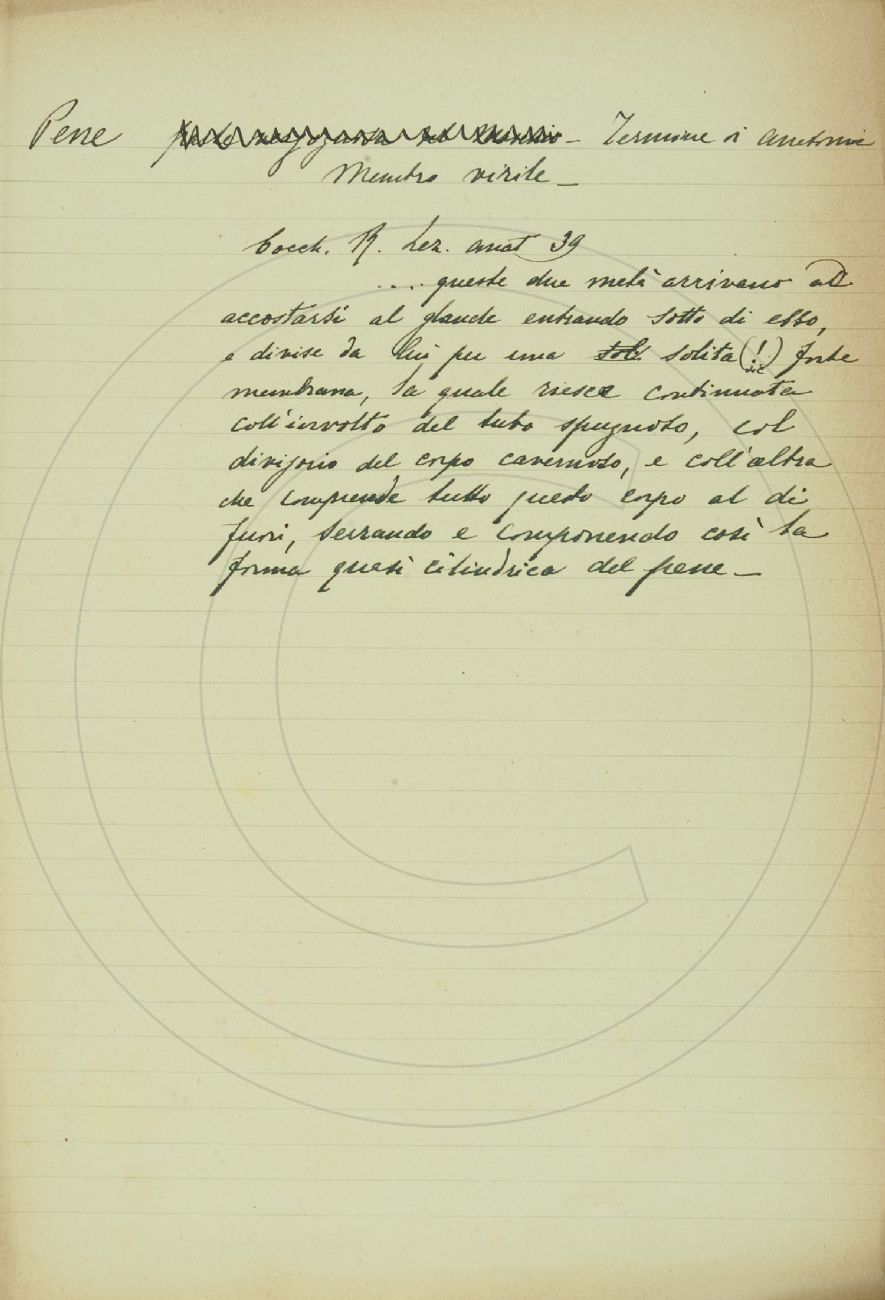 Pene Termine di Anatomia
Membro virile _
Cocch. R. Lez. anat 39
.... queste due metà arrivano ad
accostarsi al glande entrando sotto di esso,
e divise da lui per una sol solita (!) forte
sic
membrana, la quale riesce continuata
coll'involto del tubo spugnoso, col
divisorio del corpo cavernoso, e coll'altra
che comprende tutto questo corpo al di
fuori, serrando e componendo così la
forma quasi cilindrica del pene _